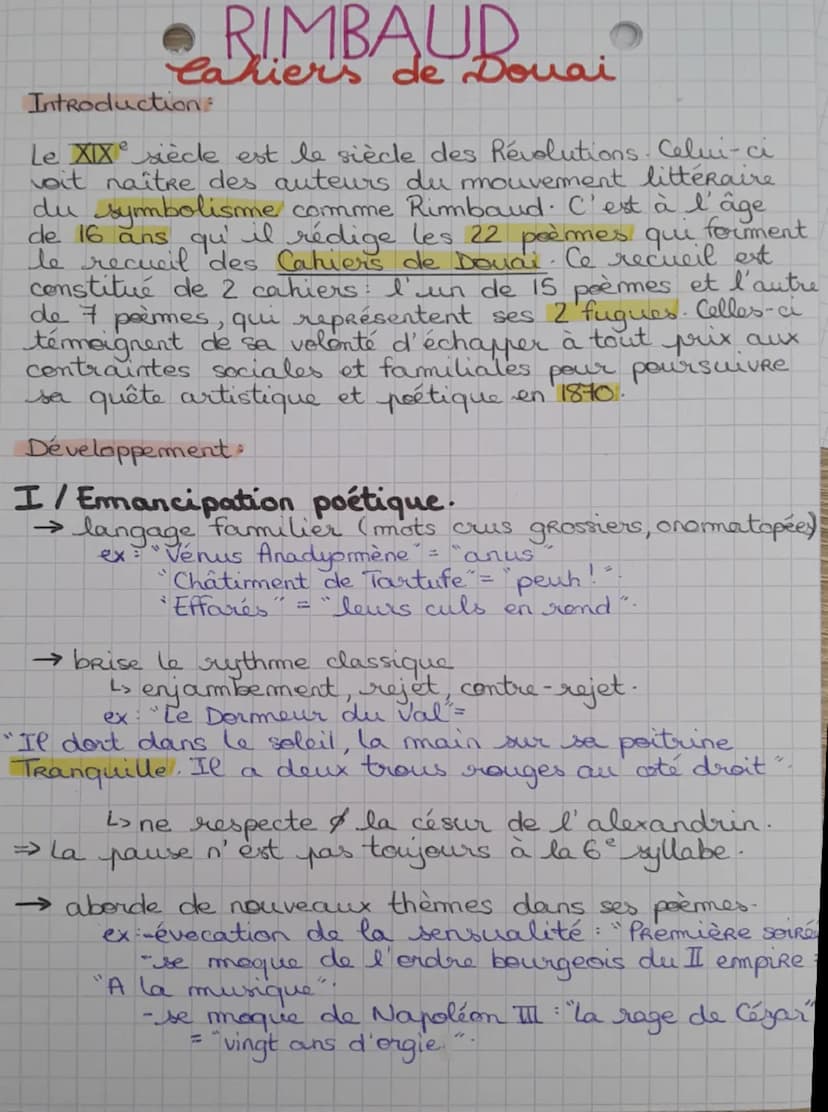 RIMBAUD
Cahiers de Douai
Introduction:
Le XIXe siècle est le siècle des Révolutions. Celui-ci
voit naître des auteurs du mouvement littéraire
du symbolisme comme Rimbaud. C'est à l'âge
de 16 ans qu'il rédige les 22 poèmes qui forment
le recueil des Cahiers de Douai. Ce recueil est
constitué de 2 cahiers: l'un de 15 poèmes et l'autre
de 7 poèmes, qui représentent ses 2 fugues. Celles-ci
témoignent de sa volonté d'échapper à tout prix aux
contraintes sociales et familiales pour poursuivre
sa quête artistique et poétique en 1870.
Développement:
I / Emancipation poétique.
→ langage familier (mots crus grossiers, onomatopées)
ex: "Vénus Anadyomène" = "anus"
"Châtiment de Tartufe" = "peuh!".
"Effarés" = "leurs culs en rond".
→ brise le rythme classique
↳ enjambement, rejet, contre-rejet.
ex: "Le Dormeur du Val" =
"Il dort dans le soleil, la main sur sa poitrine
Tranquille. Il a deux trous rouges au coté droit".
↳ ne respecte ∅ la césur de l'alexandrin.
⇒ La pause n'est pas toujours à la 6e syllabe.
→ aborde de nouveaux thèmes dans ses poèmes.
ex: -évocation de la sensualité: "Première soiré
-se moque de l'ordre bourgeois du II empire:
"A la musique".
-se moque de Napoléon III: "La rage de Cézar"
= "vingt ans d'orgie".